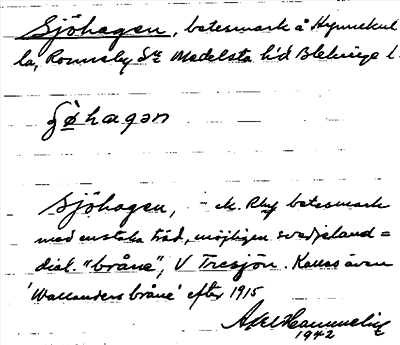 Sjöhagen, betesmark å Hynnekul
la, Ronneby Sn Medelsta h:d Blekinge l.
ʃøhagən
Sjöhagen, betesmark
med enstaka träd, möjligen svedjeland =
dial. "bråne", V Tresjön. Kallas även
'Wallanders bråne' efter 1915
Axel Hammelin
1942